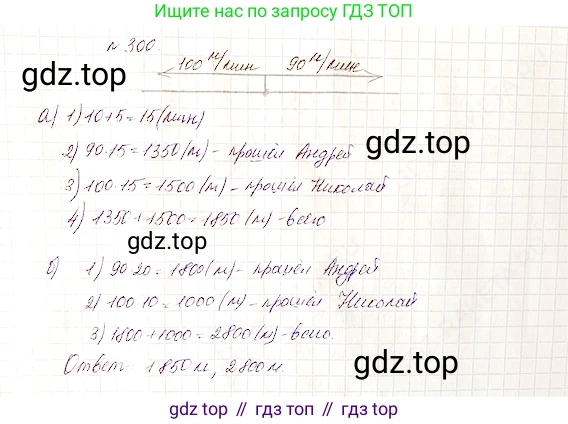 Ищите нас по запросу ГДЗ ТОП
№ 300.
100 м/мин 90 м/мин
gdz.top
а) 1) 10+5=15 (мин)
2) 90·15=1350 (м) - прошёл Андрей
gdz.top
3) 100·15=1500 (м) - прошёл Николай
4) 1350+1500=1850 (м) - всего
gdz.top
б) 1) 90·20=1800 (м) - прошёл Андрей
2) 100·10=1000 (м) - прошёл Николай
3) 1800+1000=2800 (м) - всего.
Ответ: 1850 м, 2800 м.
gdz.top
gdz top // гдз топ // gdz.top